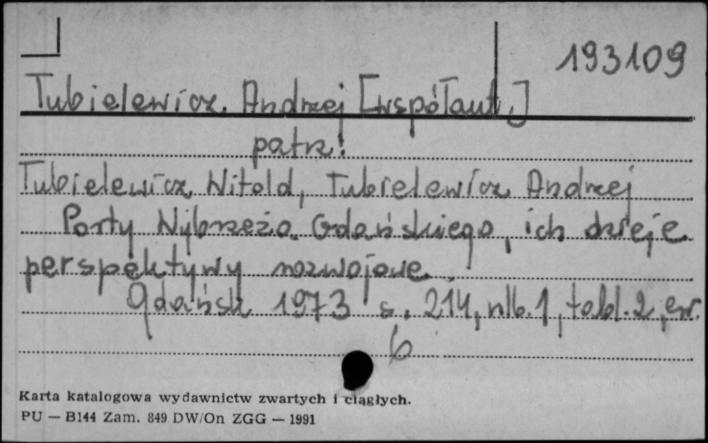 193109
Tubielewicz Andrzej [współaut.]
patrz:
Tubielewicz Witold, Tubielewicz Andrzej
Porty Wybrzeża Gdańskiego, ich dzieje
perspektywy rozwojowe.
Gdańsk 1973 s. 214, nlb. 1, tabl. 2,
6
Karta katalogowa wydawnictw zwartych i ciągłych.
PU — B144 Zam. 849 DW/On ZGG — 1991